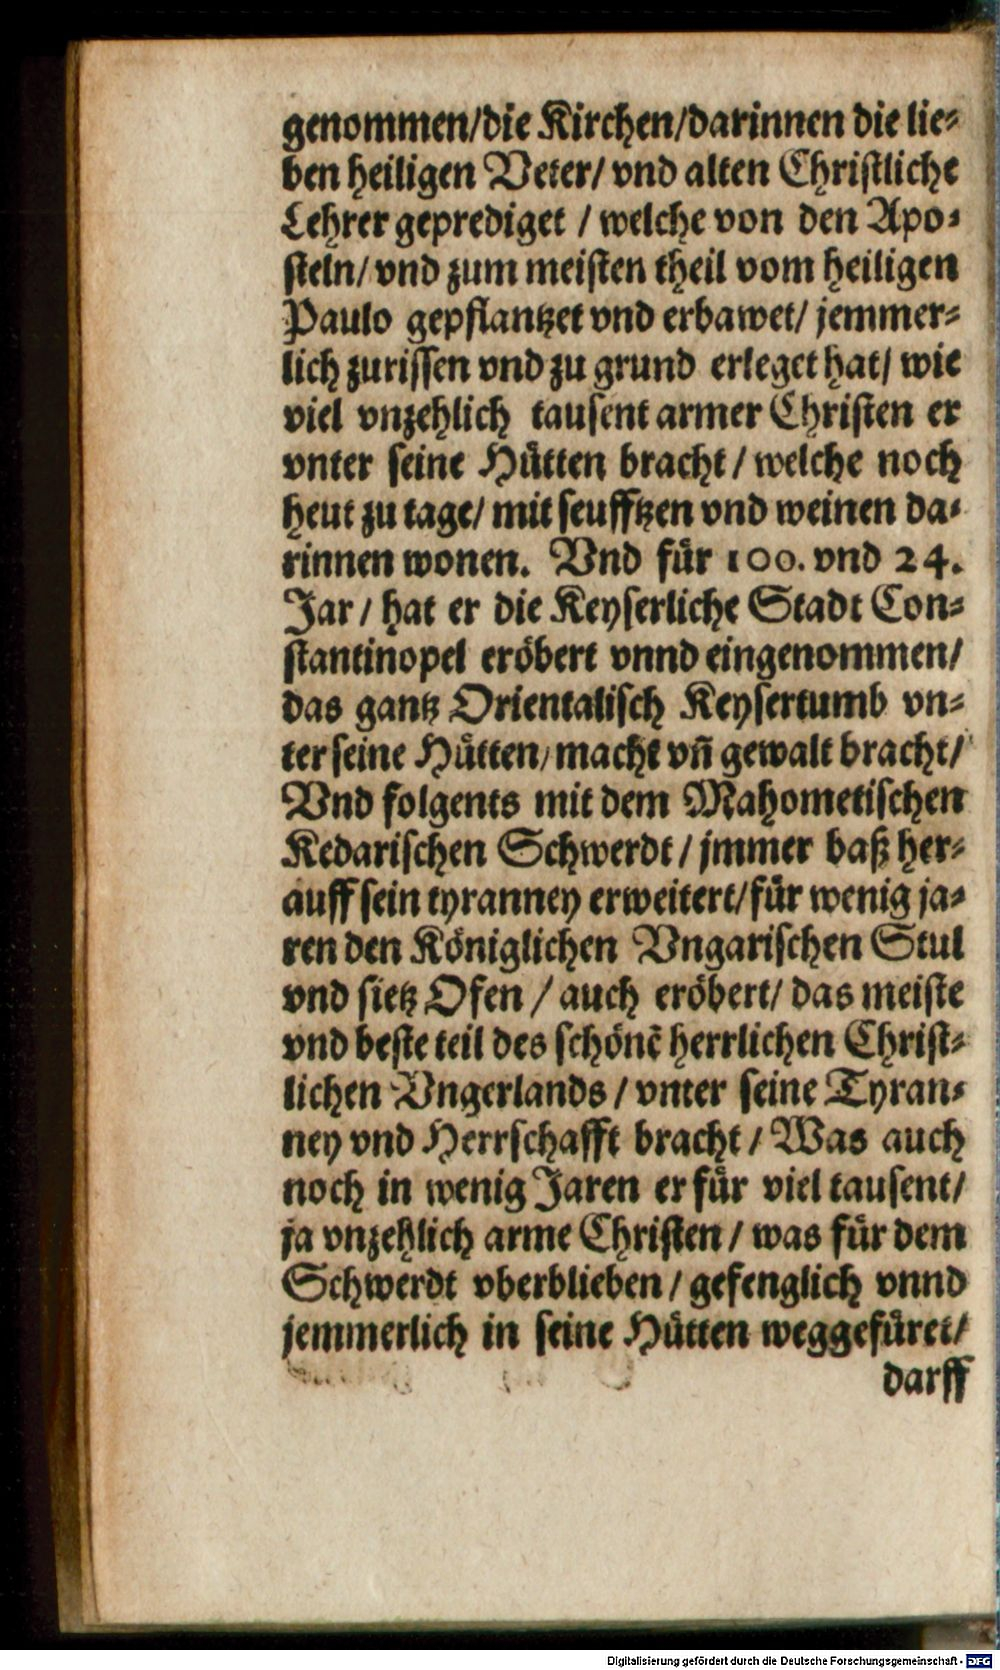 genommen/die Kirchen/darinnen die lie⸗
ben heiligen Veter/ vnd alten Christliche
Lehrer geprediget / welche von den Apo⸗
steln/ vnd zum meisten theil vom heiligen
Paulo gepflantzet vnd erbawet/ jemmer⸗
lich zurissen vnd zu grund erleget hat/ wie
viel vnzehlich tausent armer Christen er
vnter seine Hütten bracht / welche noch
heut zu tage/ mit seufftzen vnd weinen da⸗
rinnen wonen. Vnd für 100. vnd 24.
Jar / hat er die Keyserliche Stadt Con⸗
stantinopel eröbert vnnd eingenommen/
das gantz Orientalisch Keysertumb vn⸗
ter seine Hütten/ macht vñ gewalt bracht/
Vnd folgents mit dem Mahometischen
Kedarischen Schwerdt / jmmer baß her⸗
auff sein tyranney erweitert/ für wenig ja⸗
ren den Königlichen Vngarischen Stul
vnd sietz Ofen / auch eröbert/ das meiste
vnd beste teil des schönẽ herrlichen Christ⸗
lichen Vngerlands / vnter seine Tyran⸗
ney vnd Herrschafft bracht / Was auch
noch in wenig Jaren er für viel tausent/
ja vnzehlich arme Christen / was für dem
Schwerdt vberblieben / gefenglich vnnd
jemmerlich in seine Hütten weggefüret/
darff
Digitalisierung gefördert durch die Deutsche Forschungsgemeinschaft - DFG